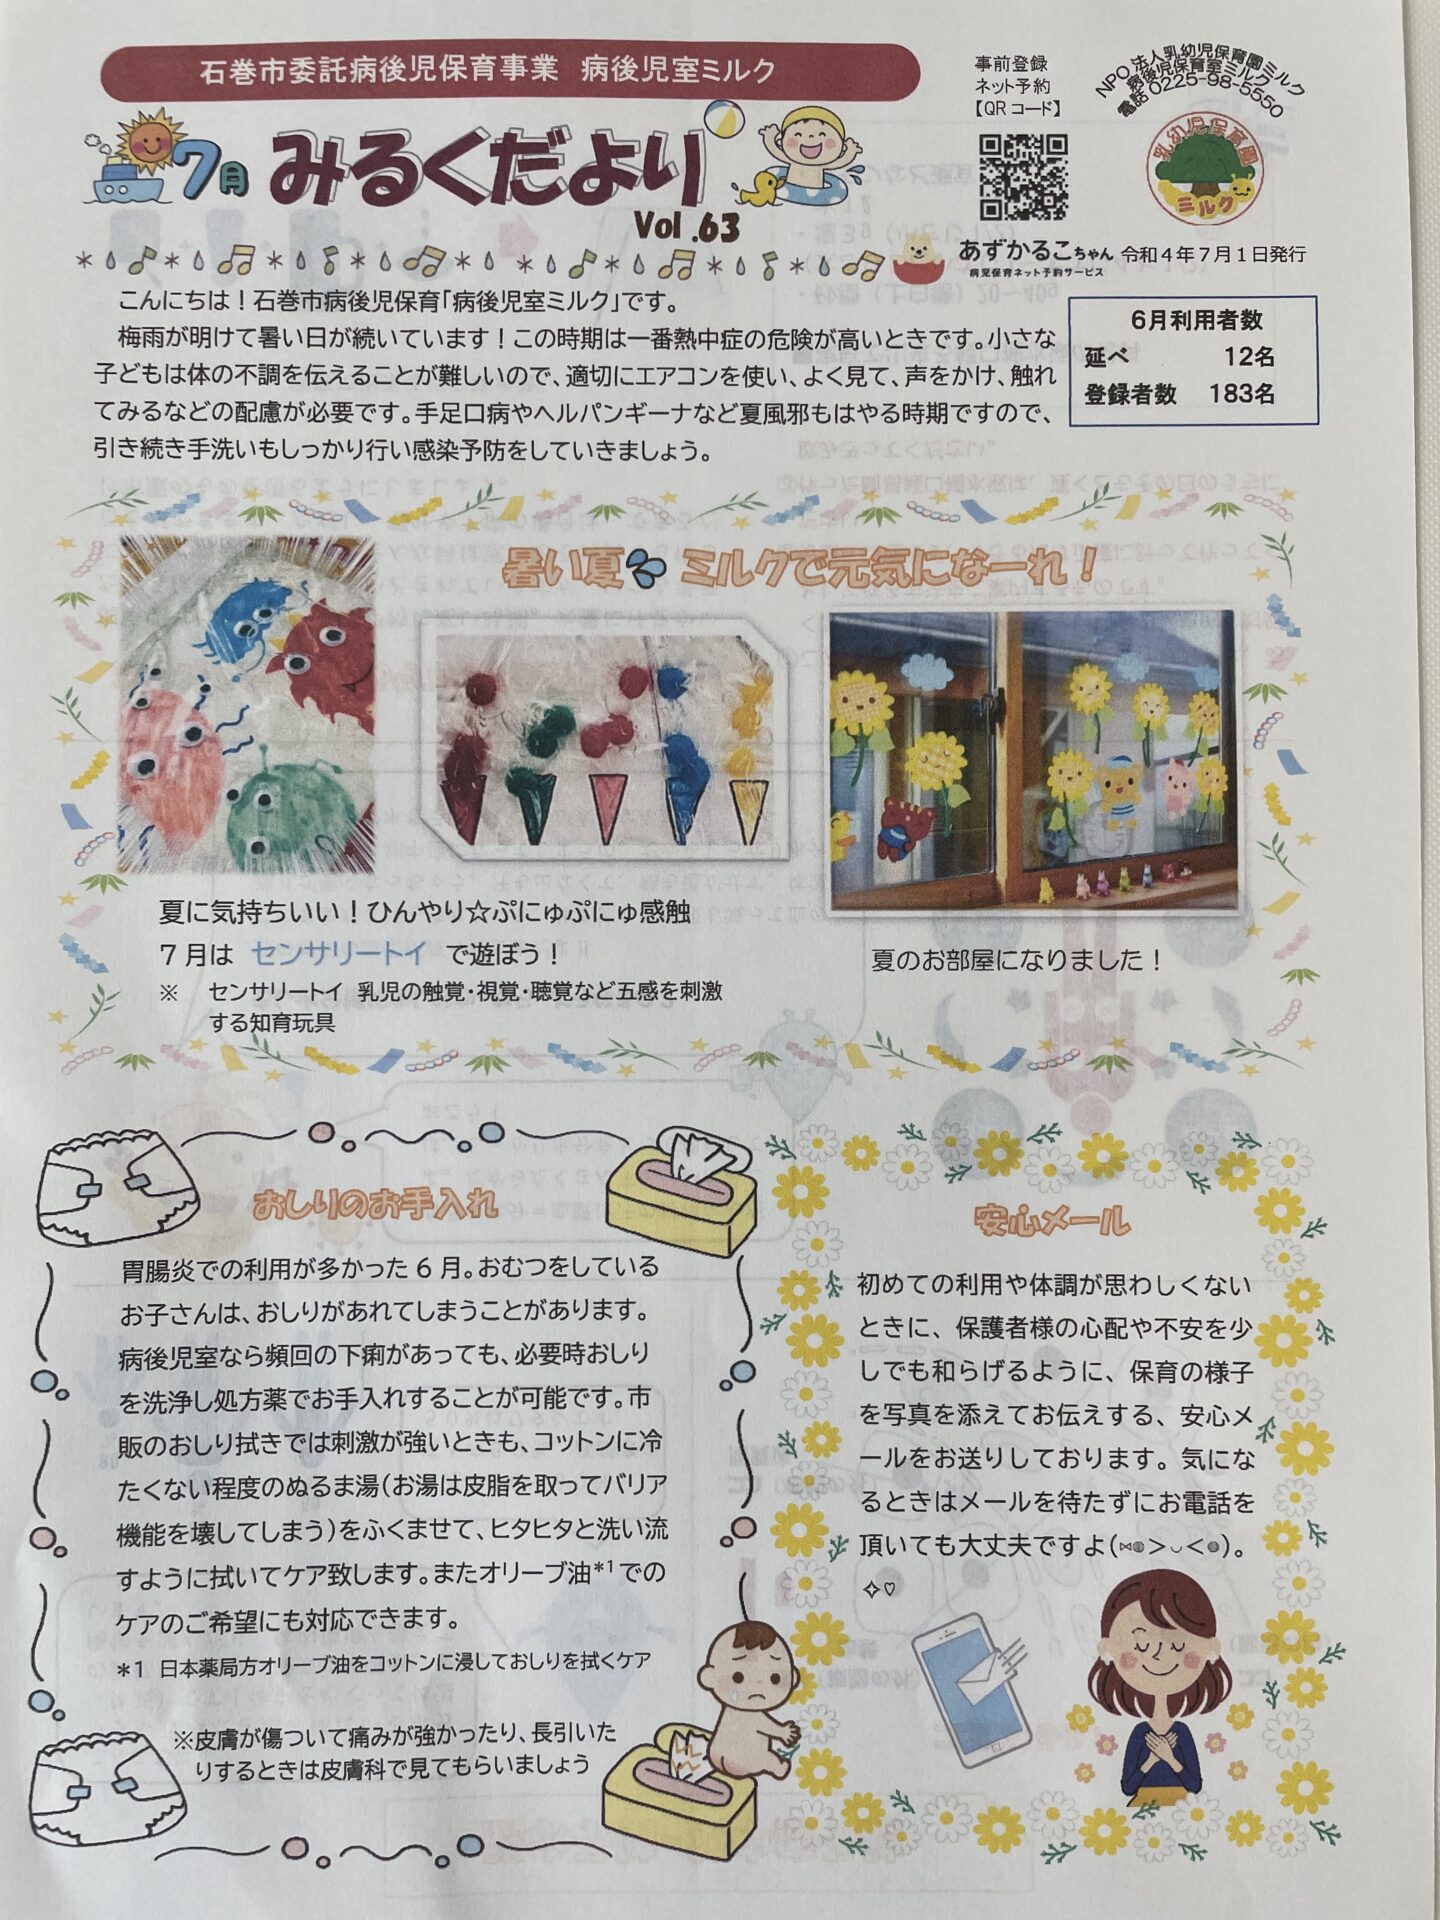 石巻市委託病後児保育事業 病後児室ミルク
事前登録
ネット予約
【QRコード】
NPO法人乳幼児保育園ミルク
病後児保育室ミルク
電話0225-98-5550
乳幼児保育園
ミルク
7月 みるくだより
Vol.63
あずかるこちゃん
病児保育ネット予約サービス
令和4年7月1日発行
こんにちは！石巻市病後児保育「病後児室ミルク」です。
梅雨が明けて暑い日が続いています！この時期は一番熱中症の危険が高いときです。小さな
子どもは体の不調を伝えることが難しいので、適切にエアコンを使い、よく見て、声をかけ、触れ
てみるなどの配慮が必要です。手足口病やヘルパンギーナなど夏風邪もはやる時期ですので、
引き続き手洗いもしっかり行い感染予防をしていきましょう。
6月利用者数
延べ 12名
登録者数 183名
暑い夏 ミルクで元気になーれ！
夏に気持ちいい！ひんやり☆ぷにゅぷにゅ感触
7月は センサリートイ で遊ぼう！
※ センサリートイ 乳児の触覚・視覚・聴覚など五感を刺激
する知育玩具
夏のお部屋になりました！
おしりのお手入れ
胃腸炎での利用が多かった6月。おむつをしている
お子さんは、おしりがあれてしまうことがあります。
病後児室なら頻回の下痢があっても、必要時おしり
を洗浄し処方薬でお手入れすることが可能です。市
販のおしり拭きでは刺激が強いときも、コットンに冷
たくない程度のぬるま湯（お湯は皮脂を取ってバリア
機能を壊してしまう）をふくませて、ヒタヒタと洗い流
すように拭いてケア致します。またオリーブ油*1での
ケアのご希望にも対応できます。
*1 日本薬局方オリーブ油をコットンに浸しておしりを拭くケア
※皮膚が傷ついて痛みが強かったり、長引いた
りするときは皮膚科で見てもらいましょう
安心メール
初めての利用や体調が思わしくない
ときに、保護者様の心配や不安を少
しでも和らげるように、保育の様子
を写真を添えてお伝えする、安心メ
ールをお送りしております。気にな
るときはメールを待たずにお電話を
頂いても大丈夫ですよ(⋈◍＞◡＜◍)。
✧♡